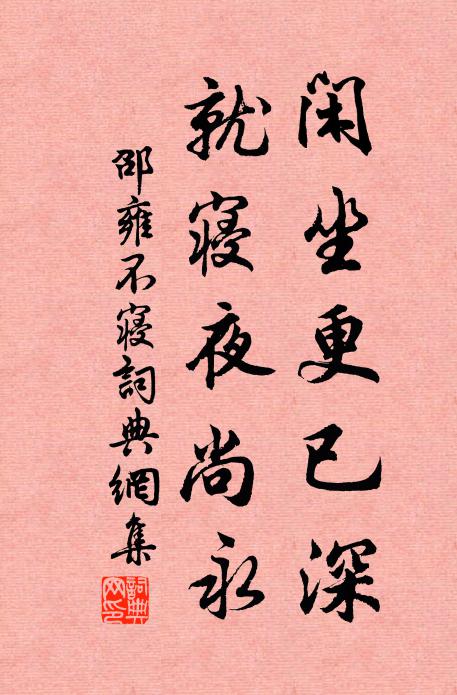 閑坐更已深
就寝夜尚永
邵雍不寝詞典網集
詞典網印